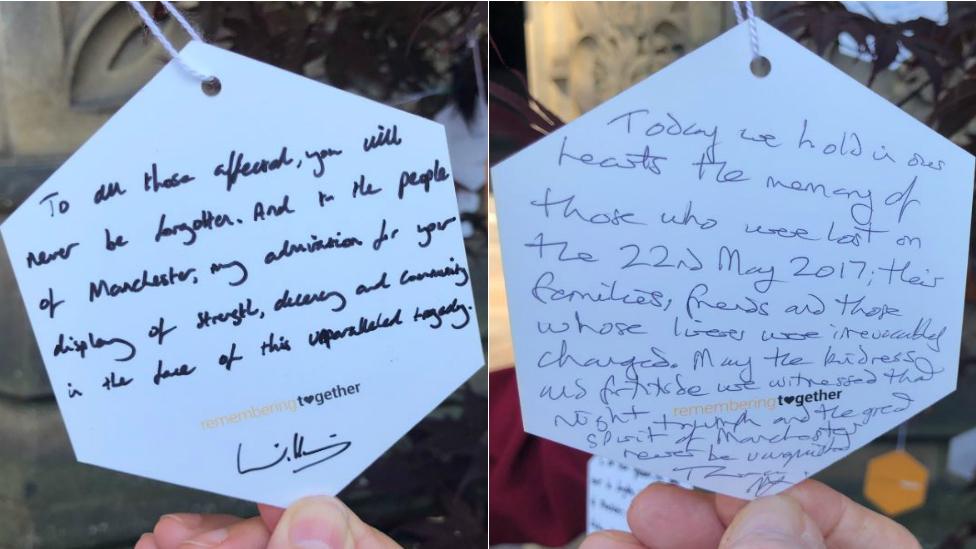 To all those affected, you will
never be forgotten. And to the people
of Manchester, my admiration for your
display of strength, decency and community
in the face of this unparalleled tragedy.
rememberingtogether
William
Today we hold in our
hearts the memory of
those who were lost on
the 22nd May 2017; their
families, friends and those
whose lives were irrevocably
changed. May the kindness
and fortitude we witnessed that
rememberingtogether
night triumph and the great
spirit of Manchester
never be vanquished